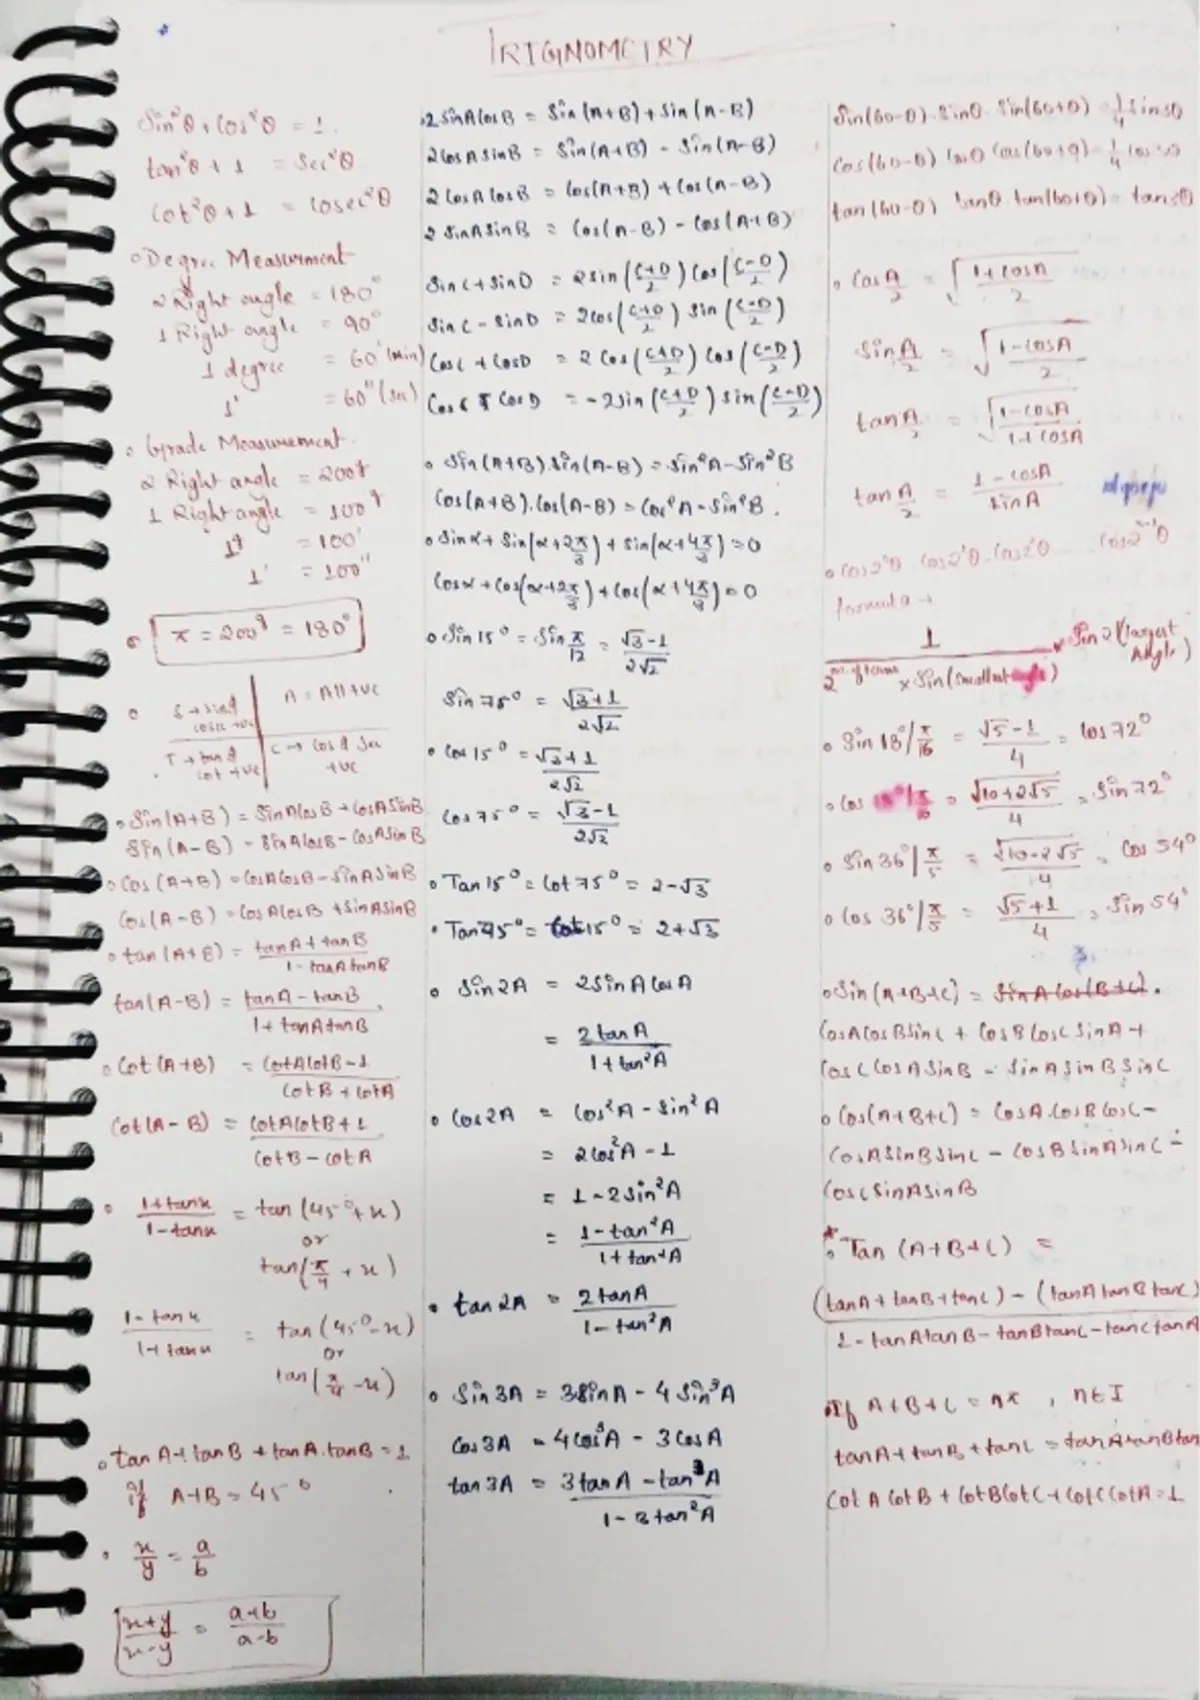 TRIGNOMETRY
Sin²θ + Cos²θ = 1.
tan²θ + 1 = Sec²θ
Cot²θ + 1 = Cosec²θ
Degree Measurment
2 Right angle = 180°
1 Right angle = 90°
1 degree = 60' (min)
1' = 60" (sec)
Grade Measurement.
2 Right angle = 200g
1 Right angle = 100g
1g = 100'
1' = 100"
π = 200g = 180°
S → sin & cosec +ve
A = All +ve
T → tan & cot +ve
C → Cos & Sec +ve
Sin(A+B) = SinACosB + CosASinB
Sin(A-B) = SinACosB - CosASinB
Cos(A+B) = CosACosB - SinASinB
Cos(A-B) = CosACosB + SinASinB
tan(A+B) = (tanA + tanB)/(1 - tanAtanB)
tan(A-B) = (tanA - tanB)/(1 + tanAtanB)
Cot(A+B) = (CotACotB - 1)/(CotB + CotA)
Cot(A-B) = (CotACotB + 1)/(CotB - CotA)
(1+tanx)/(1-tanx) = tan(45° + x)
or
tan(π/4 + x)
(1-tanx)/(1+tanx) = tan(45° - x)
or
tan(π/4 - x)
tanA + tanB + tanA.tanB = 1
if A+B = 45°
x/y = a/b
(x+y)/(x-y) = (a+b)/(a-b)
2SinACosB = Sin(A+B) + Sin(A-B)
2CosASinB = Sin(A+B) - Sin(A-B)
2CosACosB = Cos(A+B) + Cos(A-B)
2SinASinB = Cos(A-B) - Cos(A+B)
SinC + SinD = 2Sin((C+D)/2) Cos((C-D)/2)
SinC - SinD = 2Cos((C+D)/2) Sin((C-D)/2)
CosC + CosD = 2Cos((C+D)/2) Cos((C-D)/2)
CosC - CosD = -2Sin((C+D)/2) Sin((C-D)/2)
Sin(A+B).Sin(A-B) = Sin²A - Sin²B
Cos(A+B).Cos(A-B) = Cos²A - Sin²B.
Sinα + Sin(α+2π/3) + Sin(α+4π/3) = 0
Cosα + Cos(α+2π/3) + Cos(α+4π/3) = 0
Sin15° = Sin π/12 = (√3-1)/2√2
Sin75° = (√3+1)/2√2
Cos15° = (√3+1)/2√2
Cos75° = (√3-1)/2√2
Tan15° = Cot75° = 2-√3
Tan75° = Cot15° = 2+√3
Sin2A = 2SinACosA
= 2tanA/(1+tan²A)
Cos2A = Cos²A - Sin²A
= 2cos²A - 1
= 1 - 2Sin²A
= (1-tan²A)/(1+tan²A)
tan2A = 2tanA/(1-tan²A)
Sin3A = 3SinA - 4Sin³A
Cos3A = 4Cos³A - 3CosA
tan3A = (3tanA - tan³A)/(1 - 3tan²A)
Sin(60-θ).Sinθ.Sin(60+θ) = 1/4 Sin3θ
Cos(60-θ) Cosθ Cos(60+θ) = 1/4 Cos3θ
tan(60-θ) tanθ.tan(60+θ) = tan3θ
Cos A/2 = √((1+CosA)/2)
Sin A/2 = √((1-CosA)/2)
tan A/2 = √((1-CosA)/(1+CosA))
tan A/2 = (1-CosA)/SinA
Cos2⁰θ.Cos2¹θ.Cos2²θ ..... Cos2ⁿ⁻¹θ
formula →
1/(2^no. of terms × Sin(Smallest angle)) × Sin2(largest Angle)
Sin18°/π/16 = (√5-1)/4 = Cos72°
Cos 18°/π/16 = √(10+2√5)/4 = Sin72°
Sin36°/π/5 = √(10-2√5)/4 = Cos54°
Cos36°/π/5 = (√5+1)/4 = Sin54°
Sin(A+B+C) = SinACos(B+C).
CosACosBSinC + CosBCosCSinA +
CosCCosASinB - SinASinBSinC
Cos(A+B+C) = CosA.CosBCosC -
CosASinBSinC - CosBSinASinC -
CosCSinASinB
* Tan(A+B+C) =
((tanA+tanB+tanC) - (tanAtanBtanC))/(1 - tanAtanB - tanBtanC - tanCtanA)
If A+B+C = nπ, n∈I
tanA + tanB + tanC = tanAtanBtan
CotACotB + CotBCotC + CotCCotA = 1